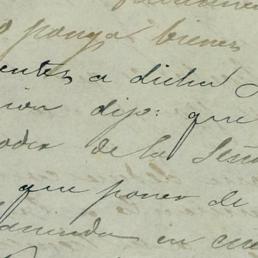 ponga bienes
entes a dicha
cion dijo: que
poder de la Seño
que poner de
en cu